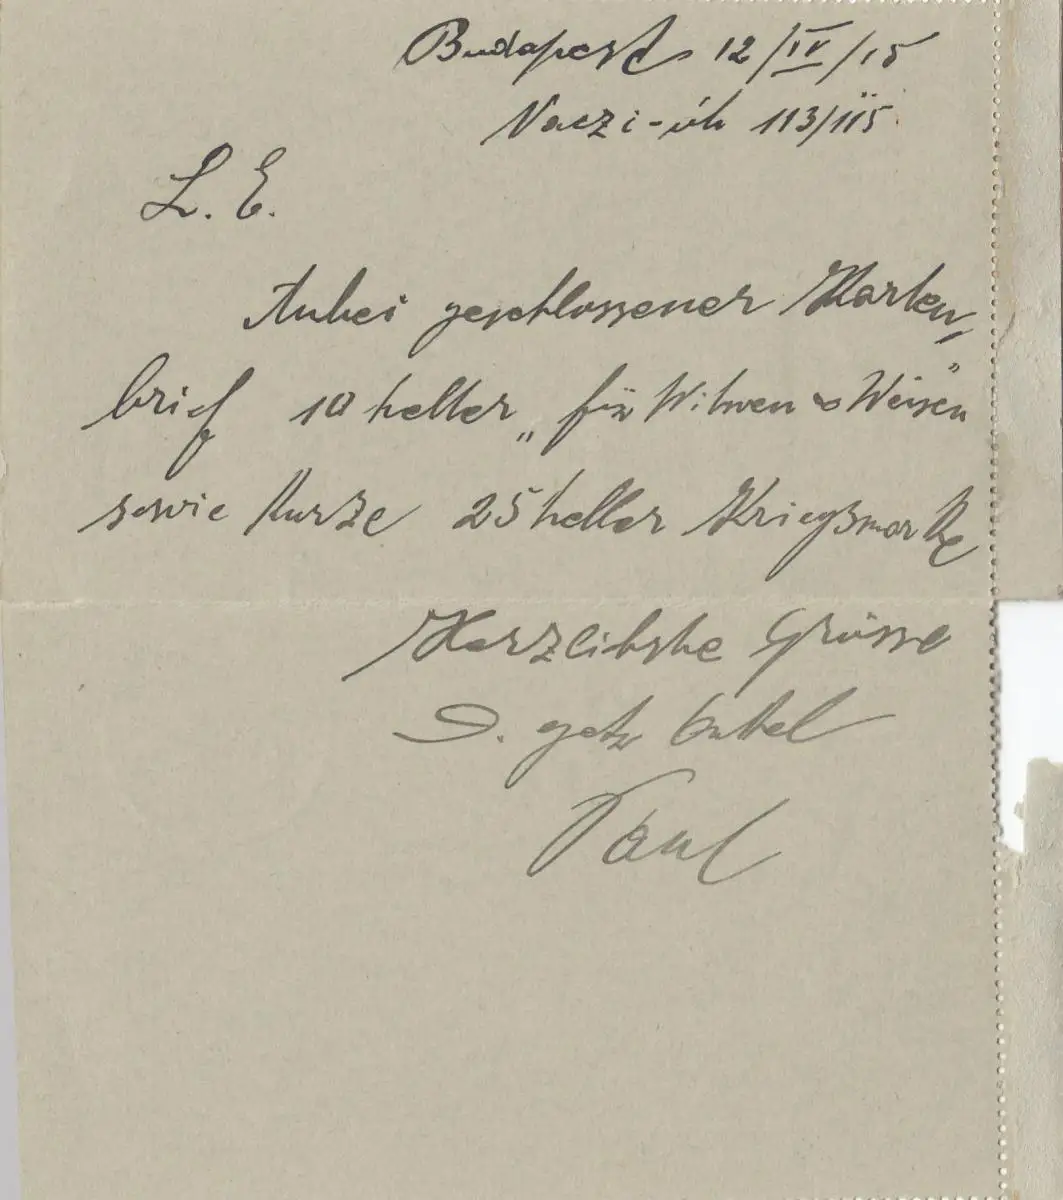 Budapest 12/IV/15
Vaczi-úh 113/115
L. E.
Anbei geschlossener Karten„
brief 10 heller „für Witwen & Weisen"
sowie Kurze 25 heller Kriegsmarke
Herzlichste Grüsse
D. getr
Paul